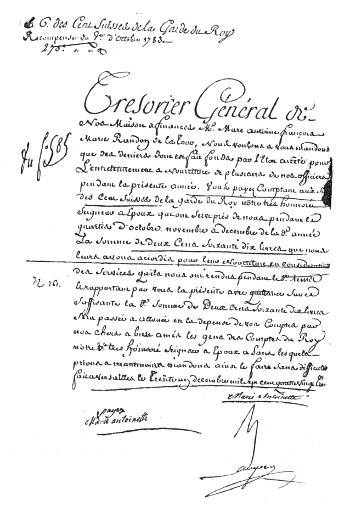 6. des Cent Suisses de la Garde du Roy
Recompense du Qer d'Octobre 1783.
270tt
Tresorier Général de
Nos Maison & finances Mr. Marc antoine françois
Marie Randon de la Tour, Nous voulons & vous mandons
que des deniers dont est fait fonds par l'Etat arrêté pour
L'entretenement & Nourriture de plusieurs de nos officiers
pendant la présente année. Vous payez Comptant aux
des Cent Suisses de la garde du Roy notre très honnoré
Seigneur & Epoux qui ont Servi près de nous pendant le
quartier d'Octobre novembre & decembre de la de. année
La Somme de Deux Cens Soixante dix livres que nous
leurs avons accordée pour leur Nourriture en considération
des Services qu'ils nous ont rendus pendant le de. tems
N 251.
& rapportant par vous la présente avec quittance sur ce
Suffisante la de. Somme de Deux Cens Soixante dix livres
sera passée & allouée en la depense de vos Comptes par
nos chers & bien amés les gens des Comptes du Roy
notre de. très honnoré Seigneur & Epoux a Paris les quels
prions & mandons ainsi le faire sans difficulté
fait a Versailles le Trente un decembre mil sept cent quatre vingt
Marie Antoinette
payez
Marie antoinette